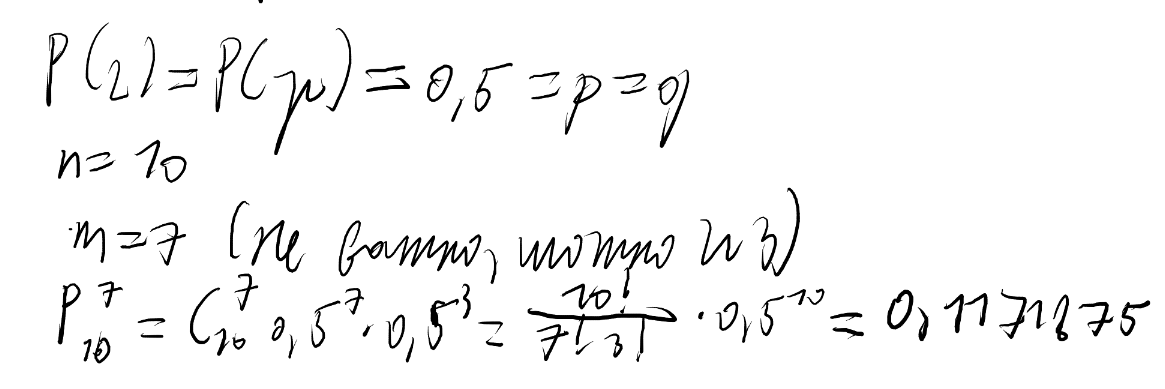 P(г)=P(р)=0,5=p=q
n=10
m=7 (не важно, можно и 3)
P₁₀⁷ = C₁₀⁷ 0,5⁷·0,5³ = 10!/7!3! · 0,5¹⁰ = 0,1171875